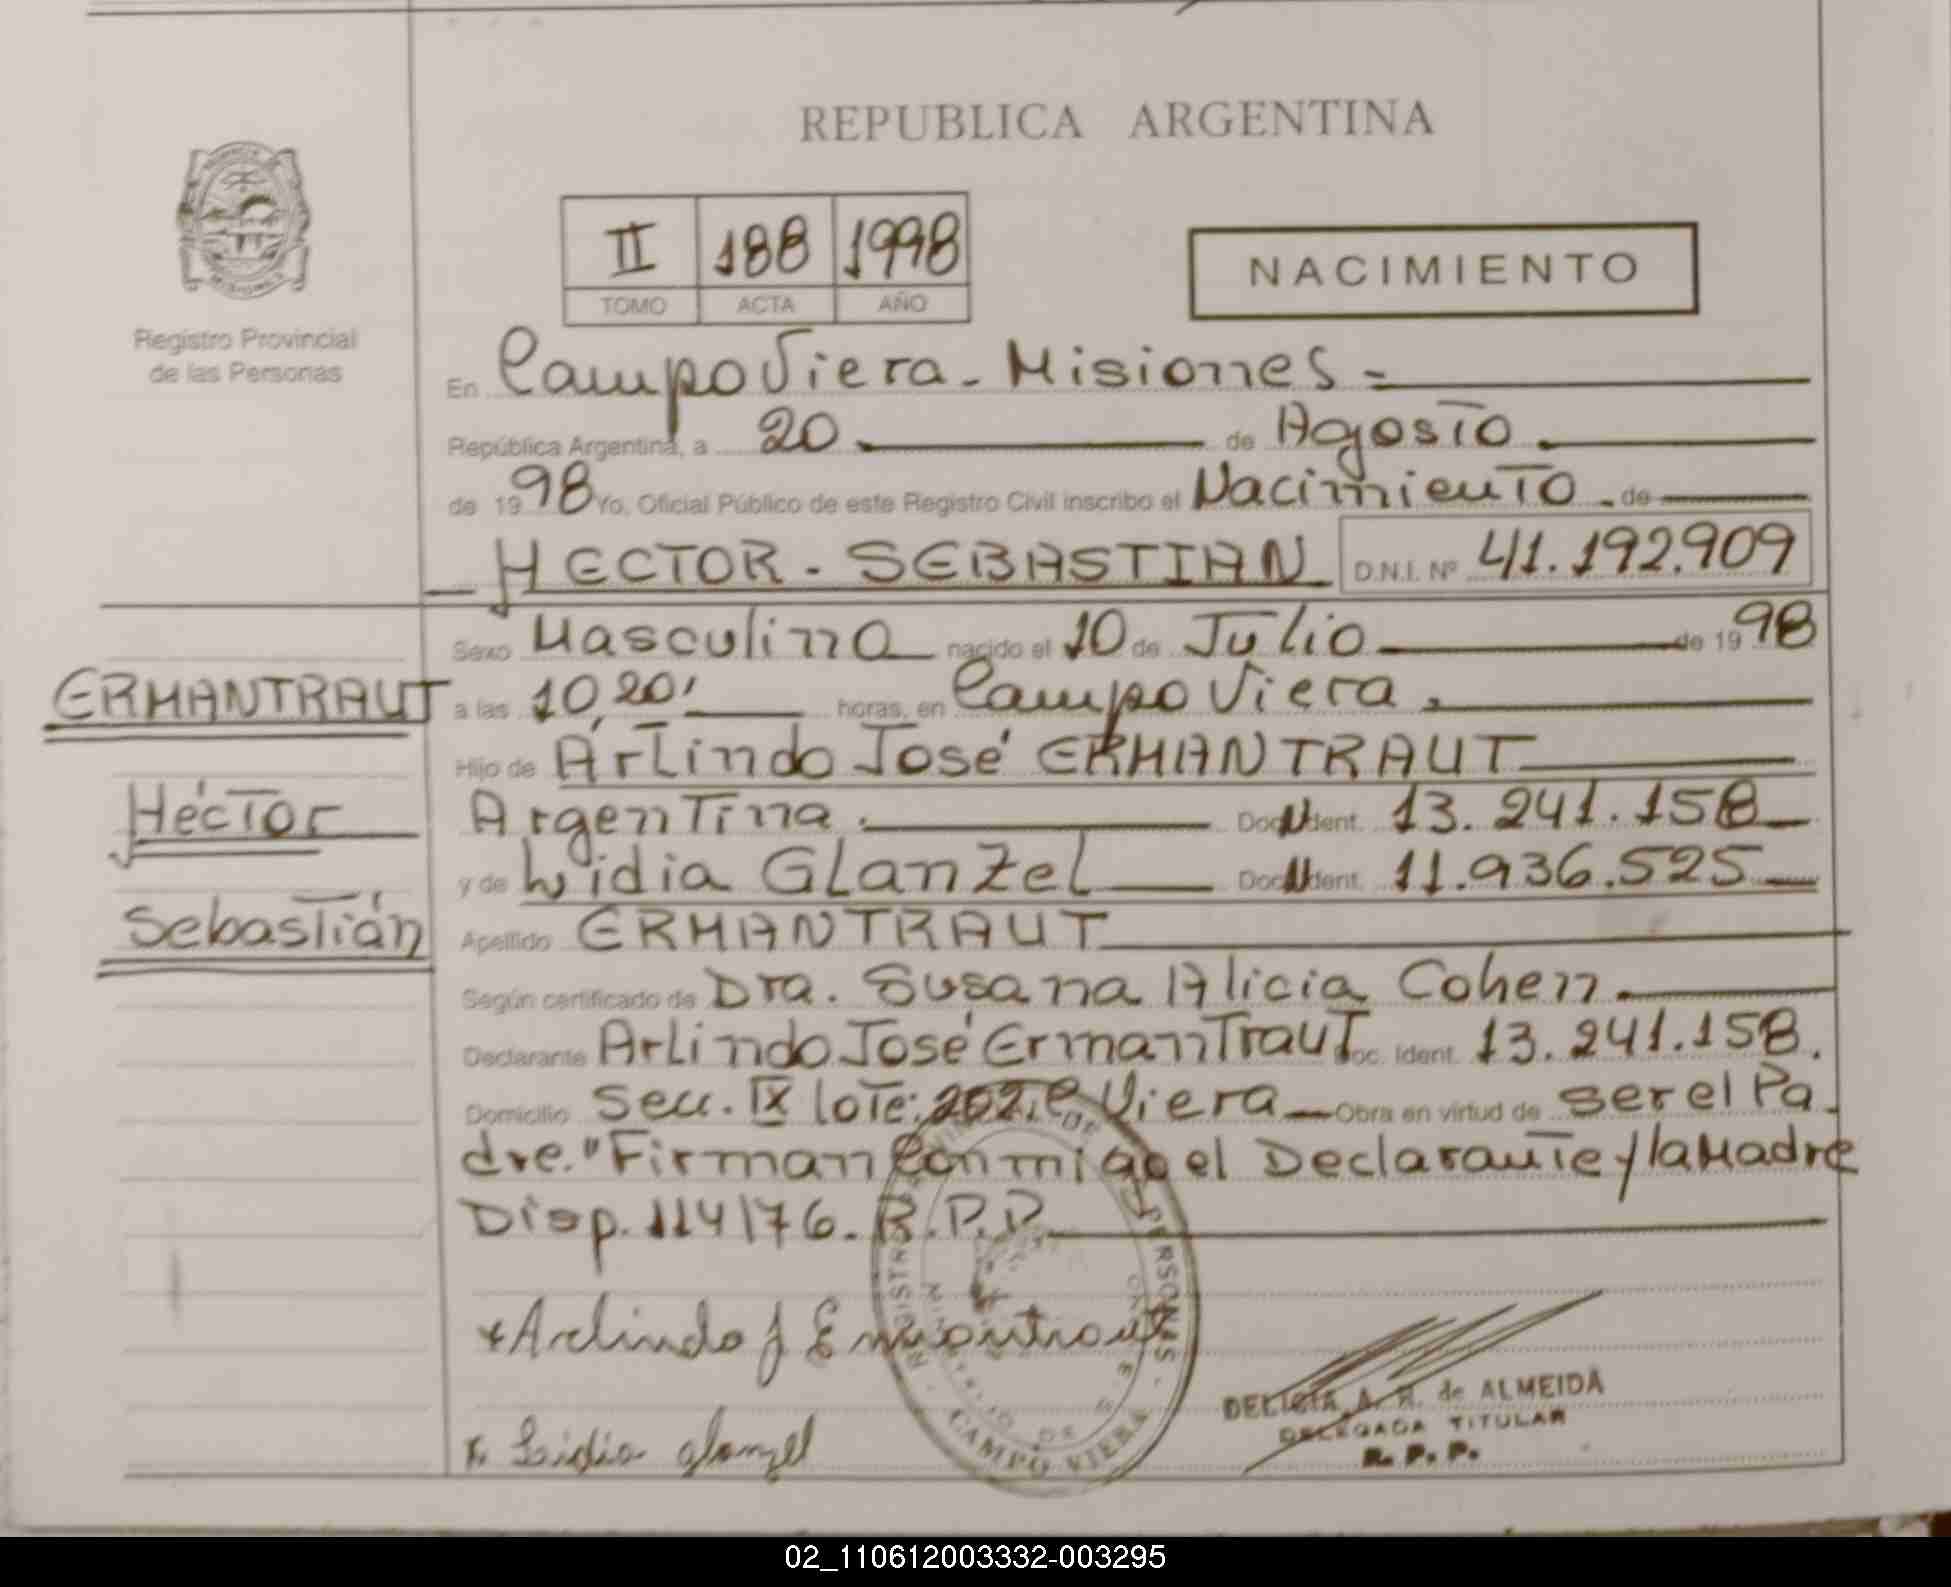 REPUBLICA ARGENTINA
II 188 1998
TOMO ACTA AÑO
NACIMIENTO
Registro Provincial
de las Personas
En Campo Viera - Misiones -
República Argentina, a 20 de Agosto
de 1998 Yo, Oficial Público de este Registro Civil inscribo el Nacimiento - de
HECTOR - SEBASTIAN D.N.I. Nº 41.192.909
Sexo Masculino nacido el 10 de Julio de 1998
ERMANTRAUT
a las 10,20' horas, en Campo Viera.
Hijo de Arlindo José ERMANTRAUT
Héctor
Argentina. Doc. Ident. 13.241.158
y de Lidia Glanzel Doc. Ident. 11.936.525
Sebastián
Apellido ERMANTRAUT
Según certificado de Dra. Susana Alicia Cohen.
Declarante Arlindo José Ermantraut Doc. Ident. 13.241.158.
Domicilio Secc. IX lote: 202. C. Viera - Obra en virtud de ser el Pa
dre. "Firman Conmigo el Declarante y la Madre
Disp. 114/76. R.P.P.
Arlindo J Ermantraut
Lidia Glanzel
CAMPO VIERA
DELICIA A. R. de ALMEIDA
DELEGADA TITULAR
R. P. P.
02_110612003332-003295